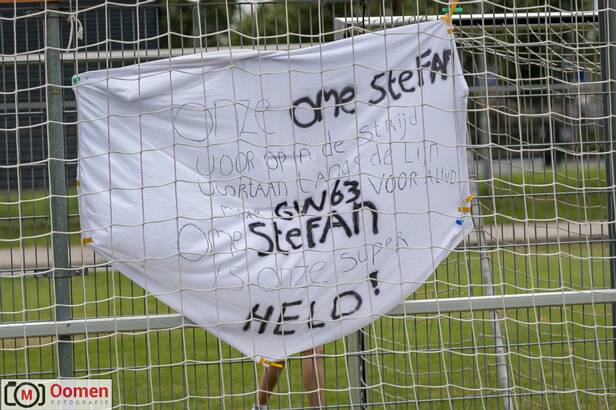 Onze ome Stefan
voor op in de strijd
voortaan langs de lijn
GW63 VOOR ALTIJD
ome Stefan
is onze super
HELD!
M Oomen
FOTOGRAFIE